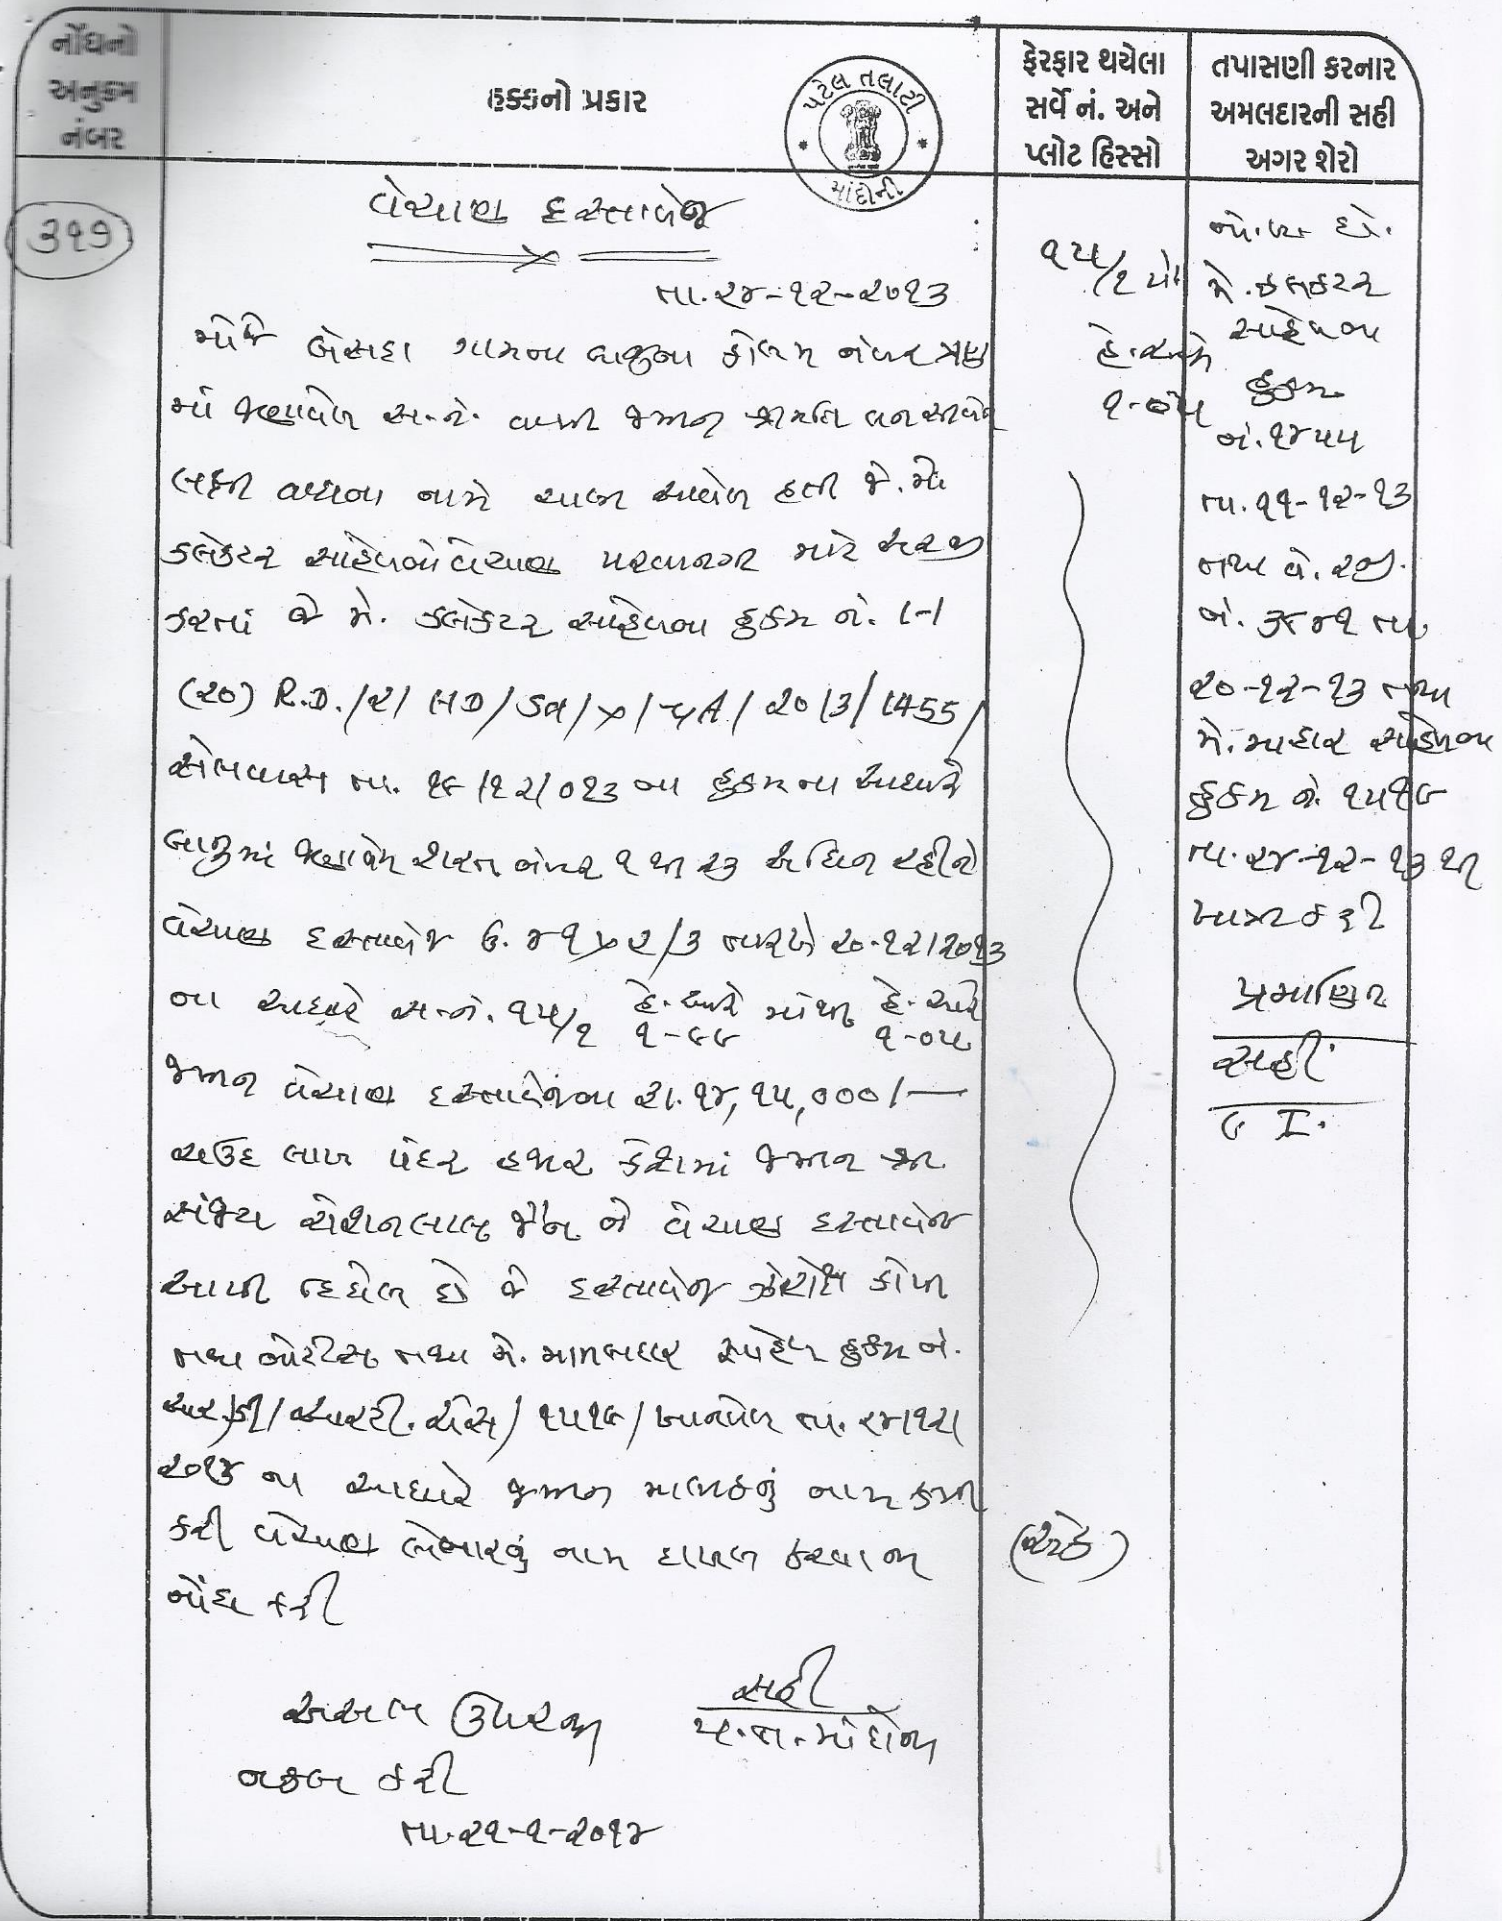 નોંધનો
અનુક્રમ
નંબર
હક્કનો પ્રકાર
પટેલ તલાટી
માંદોની
ફેરફાર થયેલા
સર્વે નં. અને
પ્લોટ હિસ્સો
તપાસણી કરનાર
અમલદારની સહી
અગર શેરો
૩૧૭
વેચાણ દસ્તાવેજ
તા.૨૪-૧૨-૨૦૧૩
મોજે બેસદા ગામના બાજુના કોલમ નંબર ત્રણ
માં જણાવેલ સ.નં. વાળી જમીન શ્રીમતિ
નામે ચાલી આવેલ હતી જે. મે.
કલેકટર સાહેબનો વેચાણ પરવાનગી માટે અરજી
કરતાં જે મે. કલેકટર સાહેબના હુકમ નં.
(૨૦) R.D./૨/ /2013/1455/
સેલવાસ તા. ૧૯/૧૨/૦૧૩ ના હુકમના આધારે
બાજુમાં જણાવેલ શરત નંબર ૧ થી ૨૩ આધિન રહીને
વેચાણ દસ્તાવેજ તારીખ ૨૦-૧૨/૨૦૧૩
ના આધારે સ.નં. ૧૫/૧ હે.આરે માંથી હે.આરે
૧-૯૯ ૧-૦૫
જમીન વેચાણ દસ્તાવેજના રૂા.૧૪,૧૫,૦૦૦/—
ચઉદ લાખ પંદર હજાર કેશમાં જમીન શ્રી
સંજય રોશનલાલ જૈન ને વેચાણ દસ્તાવેજ
આપી દિધેલ છે જે દસ્તાવેજ ઝેરોક્ષ કોપી
તથા નોટીસ તથા મે. મામલતદાર સાહેબ હુકમ નં.
આર.ડી/આરટી.એસ/૧૫૧૯/ખાનવેલ તા. ૨૪/૧૨/
૨૦૧૩ ના આધારે જમીન માલીકનું નામ કમી
કરી વેચાણ લેનારનું નામ દાખલ કરવાની
નોંધ કરી
સહી
પ.ત.માંદોની
અસલ ઉપરથી
નકલ કરી
તા.૨૧-૧-૨૦૧૪
૧૫/૧ પૈ
હે.આરે
૧-૦૫
(એક)
મે.કલેકટર
સાહેબના
હુકમ
નં.૧૪૫૫
તા.૧૧-૧૨-૧૩
તથા વે. રજી.
નં. ૩૯૪૧ તા.
૨૦-૧૨-૧૩ તથા
મે.મામલતદાર સાહેબના
હુકમ નં. ૧૫૧૯
તા.૨૪-૧૨-૧૩ થી
ખાત્રી કરી
પ્રમાણિત
સહી
C I.